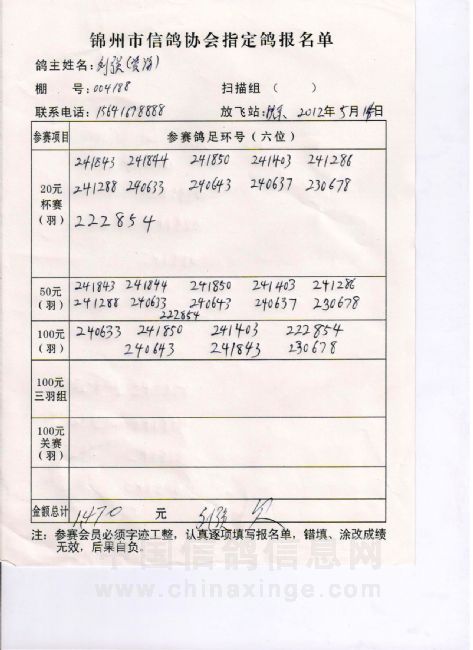 锦州市信鸽协会指定鸽报名单
鸽主姓名: 刘强
棚 号: 004188 扫描组 ( )
联系电话: 15641678888 放飞站: 2012年5月14日
参赛项目 参赛鸽足环号(六位)
20元杯赛(羽) 241843 241844 241850 241403 241286
241288 240633 240643 240637 230678
222854
50元(羽) 241843 241844 241850 241403 241286
241288 240633 240643 240637 230678
222854
100元(羽) 240633 241850 241403 222854
240643 241843 230678
100元三羽组
100元关赛(羽)
金额总计 1470 元 刘强
注: 参赛会员必须字迹工整, 认真逐项填写报名单, 错填、涂改成绩
无效, 后果自负。
中国信鸽信息网
www.chinaxinge.com